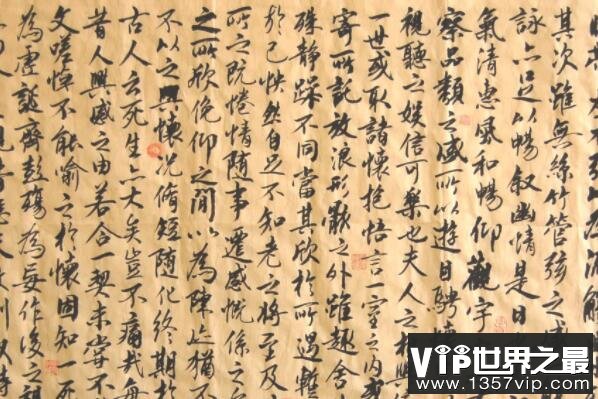 其次雖無絲竹管弦之
詠亦足以暢敘幽情是日
氣清惠風和暢仰觀宇
察品類之盛所以遊目騁懷
視聽之娛信可樂也夫人之相
一世或取諸懷抱悟言一室之內
寄所託放浪形骸之外雖趣舍
殊靜躁不同當其欣於所遇暫
於己怏然自足不知老之將至及
所之既惓情隨事遷感慨係之
之所欣俛仰之間以為陳迹猶不
不以之興懷況脩短隨化終期於
古人云死生亦大矣豈不痛哉每
昔人興感之由若合一契未嘗不
文嗟悼不能喻之於懷固知一死
為虛誕齊彭殤為妄作後之視
VIP世界之最
www.1357vip.com